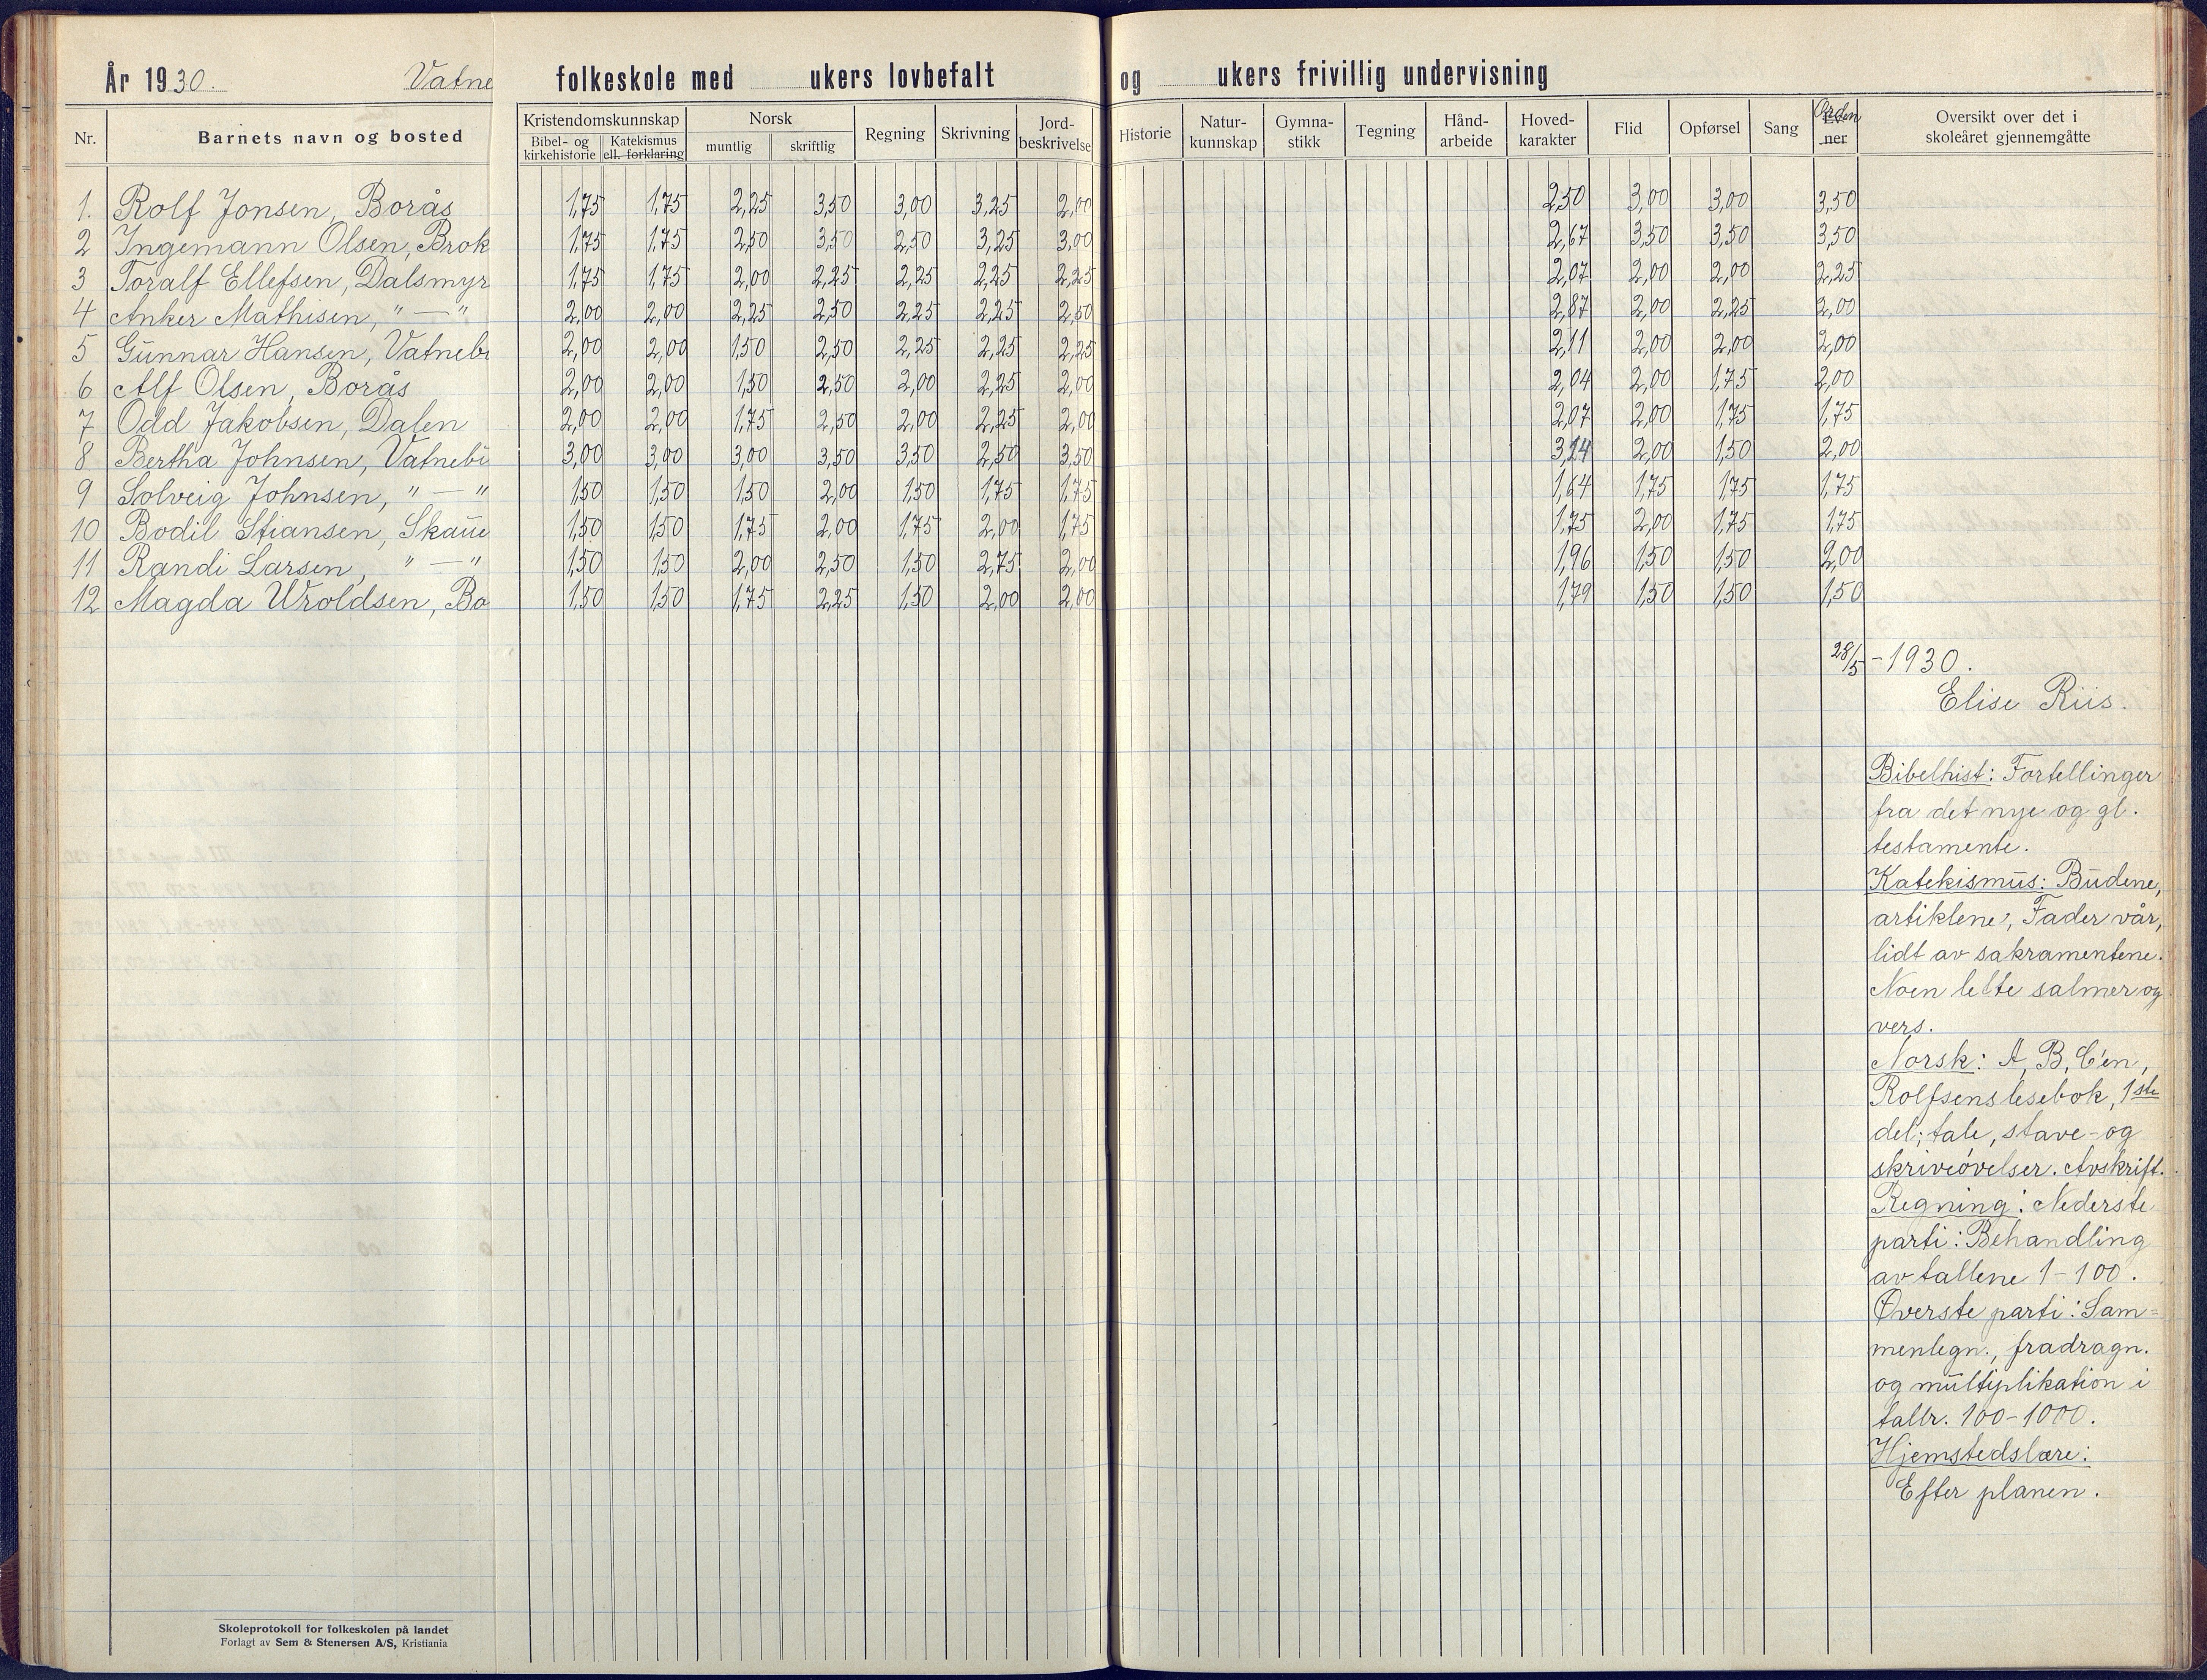 År 1930. Vatne folkeskole med ukers lovbefalt og ukers frivillig undervisning
Nr. Barnets navn og bosted Kristendomskunnskap Bibel- og kirkehistorie Katekismus ell. forklaring Norsk muntlig skriftlig Regning Skrivning Jord-beskrivelse Historie Natur-kunnskap Gymna-stikk Tegning Hånd-arbeide Hoved-karakter Flid Opførsel Sang Orden Ev-ner Oversikt over det i skoleåret gjennemgåtte
1. Rolf Jonsen, Borås 1,75 1,75 2,25 3,50 3,00 3,25 2,00 2,50 3,00 3,00 3,50
2 Ingemann Olsen, Brok 1,75 1,75 2,50 3,50 2,50 3,25 3,00 2,67 3,50 3,50 3,50
3 Toralf Ellefsen, Dalsmyr 1,75 1,75 2,00 2,25 2,25 2,25 2,25 2,07 2,00 2,00 2,25
4 Anker Mathisen, " — " 2,00 2,00 2,25 2,50 2,25 2,25 2,50 2,87 2,00 2,25 2,00
5 Gunnar Hansen, Vatnebu 2,00 2,00 1,50 2,50 2,25 2,25 2,25 2,11 2,00 2,00 2,00
6 Alf Olsen, Borås 2,00 2,00 1,50 2,50 2,00 2,25 2,00 2,04 2,00 1,75 2,00
7 Odd Jakobsen, Dalen 2,00 2,00 1,75 2,50 2,00 2,25 2,00 2,07 2,00 1,75 1,75
8 Bertha Johnsen, Vatnebu 3,00 3,00 3,00 3,50 3,50 2,50 3,50 3,14 2,00 1,50 2,00
9 Solveig Johnsen, " — " 1,50 1,50 1,50 2,00 1,50 1,75 1,75 1,64 1,75 1,75 1,75
10 Bodil Stiansen, Skaue 1,50 1,50 1,75 2,00 1,75 2,00 1,75 1,75 2,00 1,75 1,75
11 Randi Larsen, " — " 1,50 1,50 2,00 2,50 1,50 2,75 2,00 1,96 1,50 1,50 2,00
12 Magda Uroldsen, Bo 1,50 1,50 1,75 2,25 1,50 2,00 2,00 1,79 1,50 1,50 1,50
28/5 - 1930.
Elise Riis.
Bibelhist: Fortellinger
fra det nye og gl.
testamente.
Katekismus: Budene,
artiklene, Fader vår,
lidt av sakramentene.
Noen lette salmer og
vers.
Norsk: A, B, C'en,
Rolfsens lesebok, 1ste
del; tale, stave- og
skriveøvelser. Avskrift.
Regning: Nederste
parti: Behandling
av tallene 1-100.
Øverste parti: Sam=
menlegn., fradragn.
og multiplikation i
tallr. 100-1000.
Hjemstedslære:
Efter planen.
Skoleprotokoll for folkeskolen på landet
Forlagt av Sem & Stenersen A/S, Kristiania